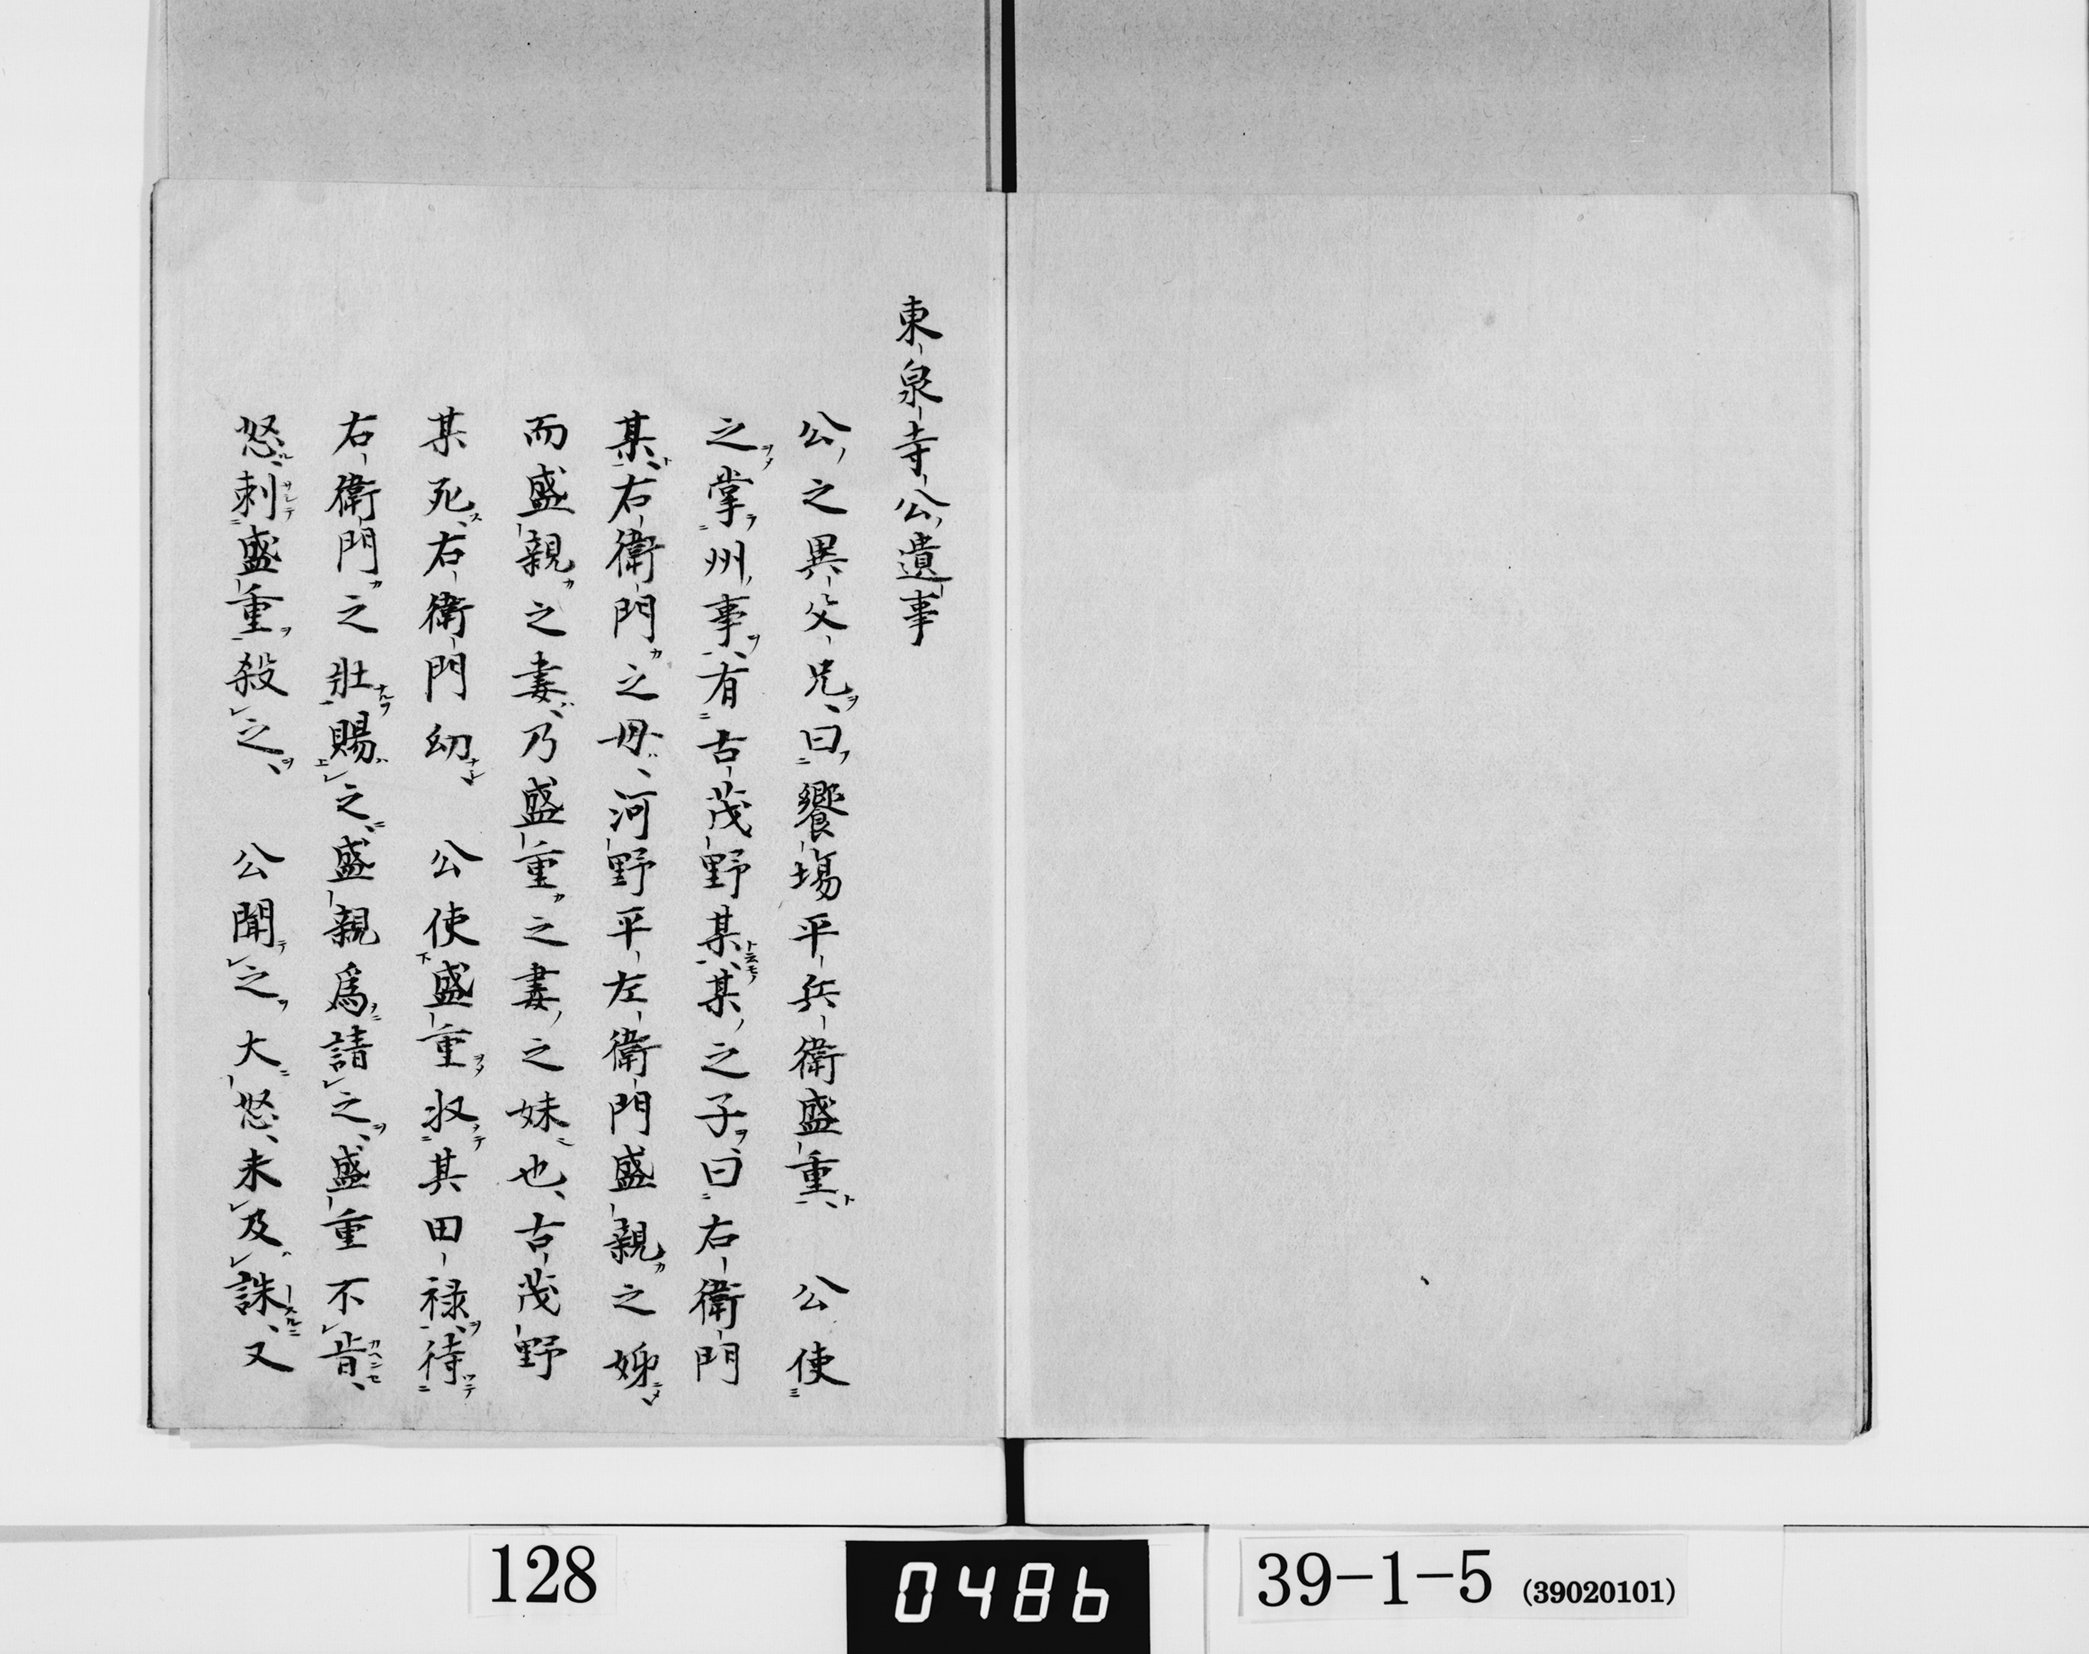 東泉寺公遺事
公之異父兄曰饗塲平兵衛盛重、　公使
之掌州事、有古茂野某、某之子曰右衛門
某、右衛門之母、河野平左衛門盛親之姊、
而盛親之妻、乃盛重之妻之妹也、古茂野
某死、右衛門幼、　公使盛重收其田禄、待
右衛門之壯賜之、盛親爲請之、盛重不肯、
怒、刺盛重殺之、　公聞之大怒、未及誅、又
128
0486
39-1-5 (39020101)